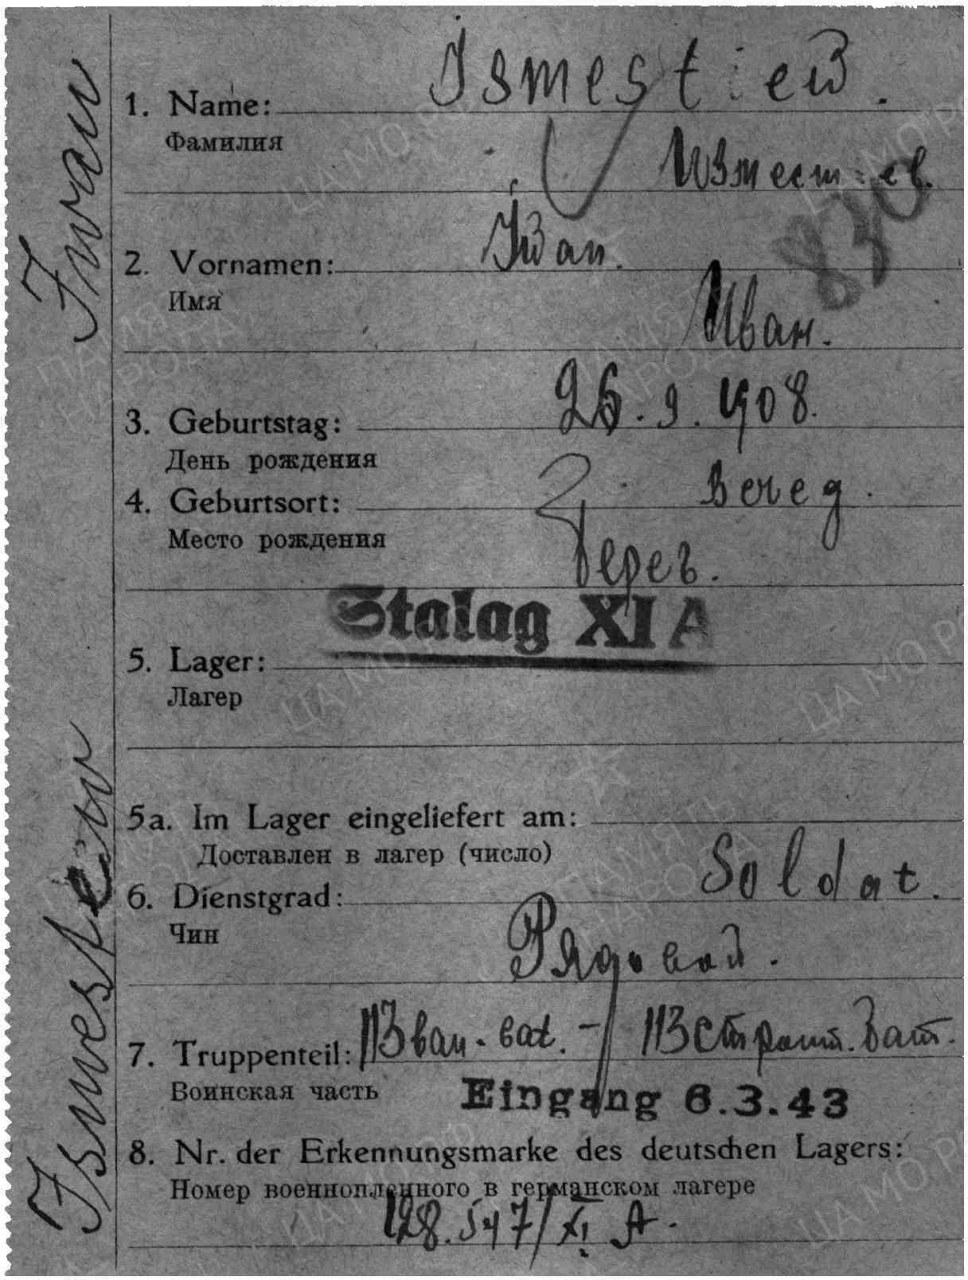 Ismestiew.
1. Name:
Фамилия
Измест ев.
830
Iwan.
2. Vornamen:
Имя
Иван.
26.9.1908.
3. Geburtstag:
День рождения
4. Geburtsort:
Место рождения
Stalag XI A
5. Lager:
Лагер
5a. Im Lager eingeliefert am:
Доставлен в лагер (число)
Soldat.
6. Dienstgrad:
Чин
Рядовой.
7. Truppenteil: 113 bau. bat. - 113 строит. бат.
Воинская часть
Eingang 6.3.43
8. Nr. der Erkennungsmarke des deutschen Lagers:
Номер военнопленного в германском лагере
128.547/XI A.
Ismestew Iwan
ЦА МО РФ
ПАМЯТЬ НАРОДА